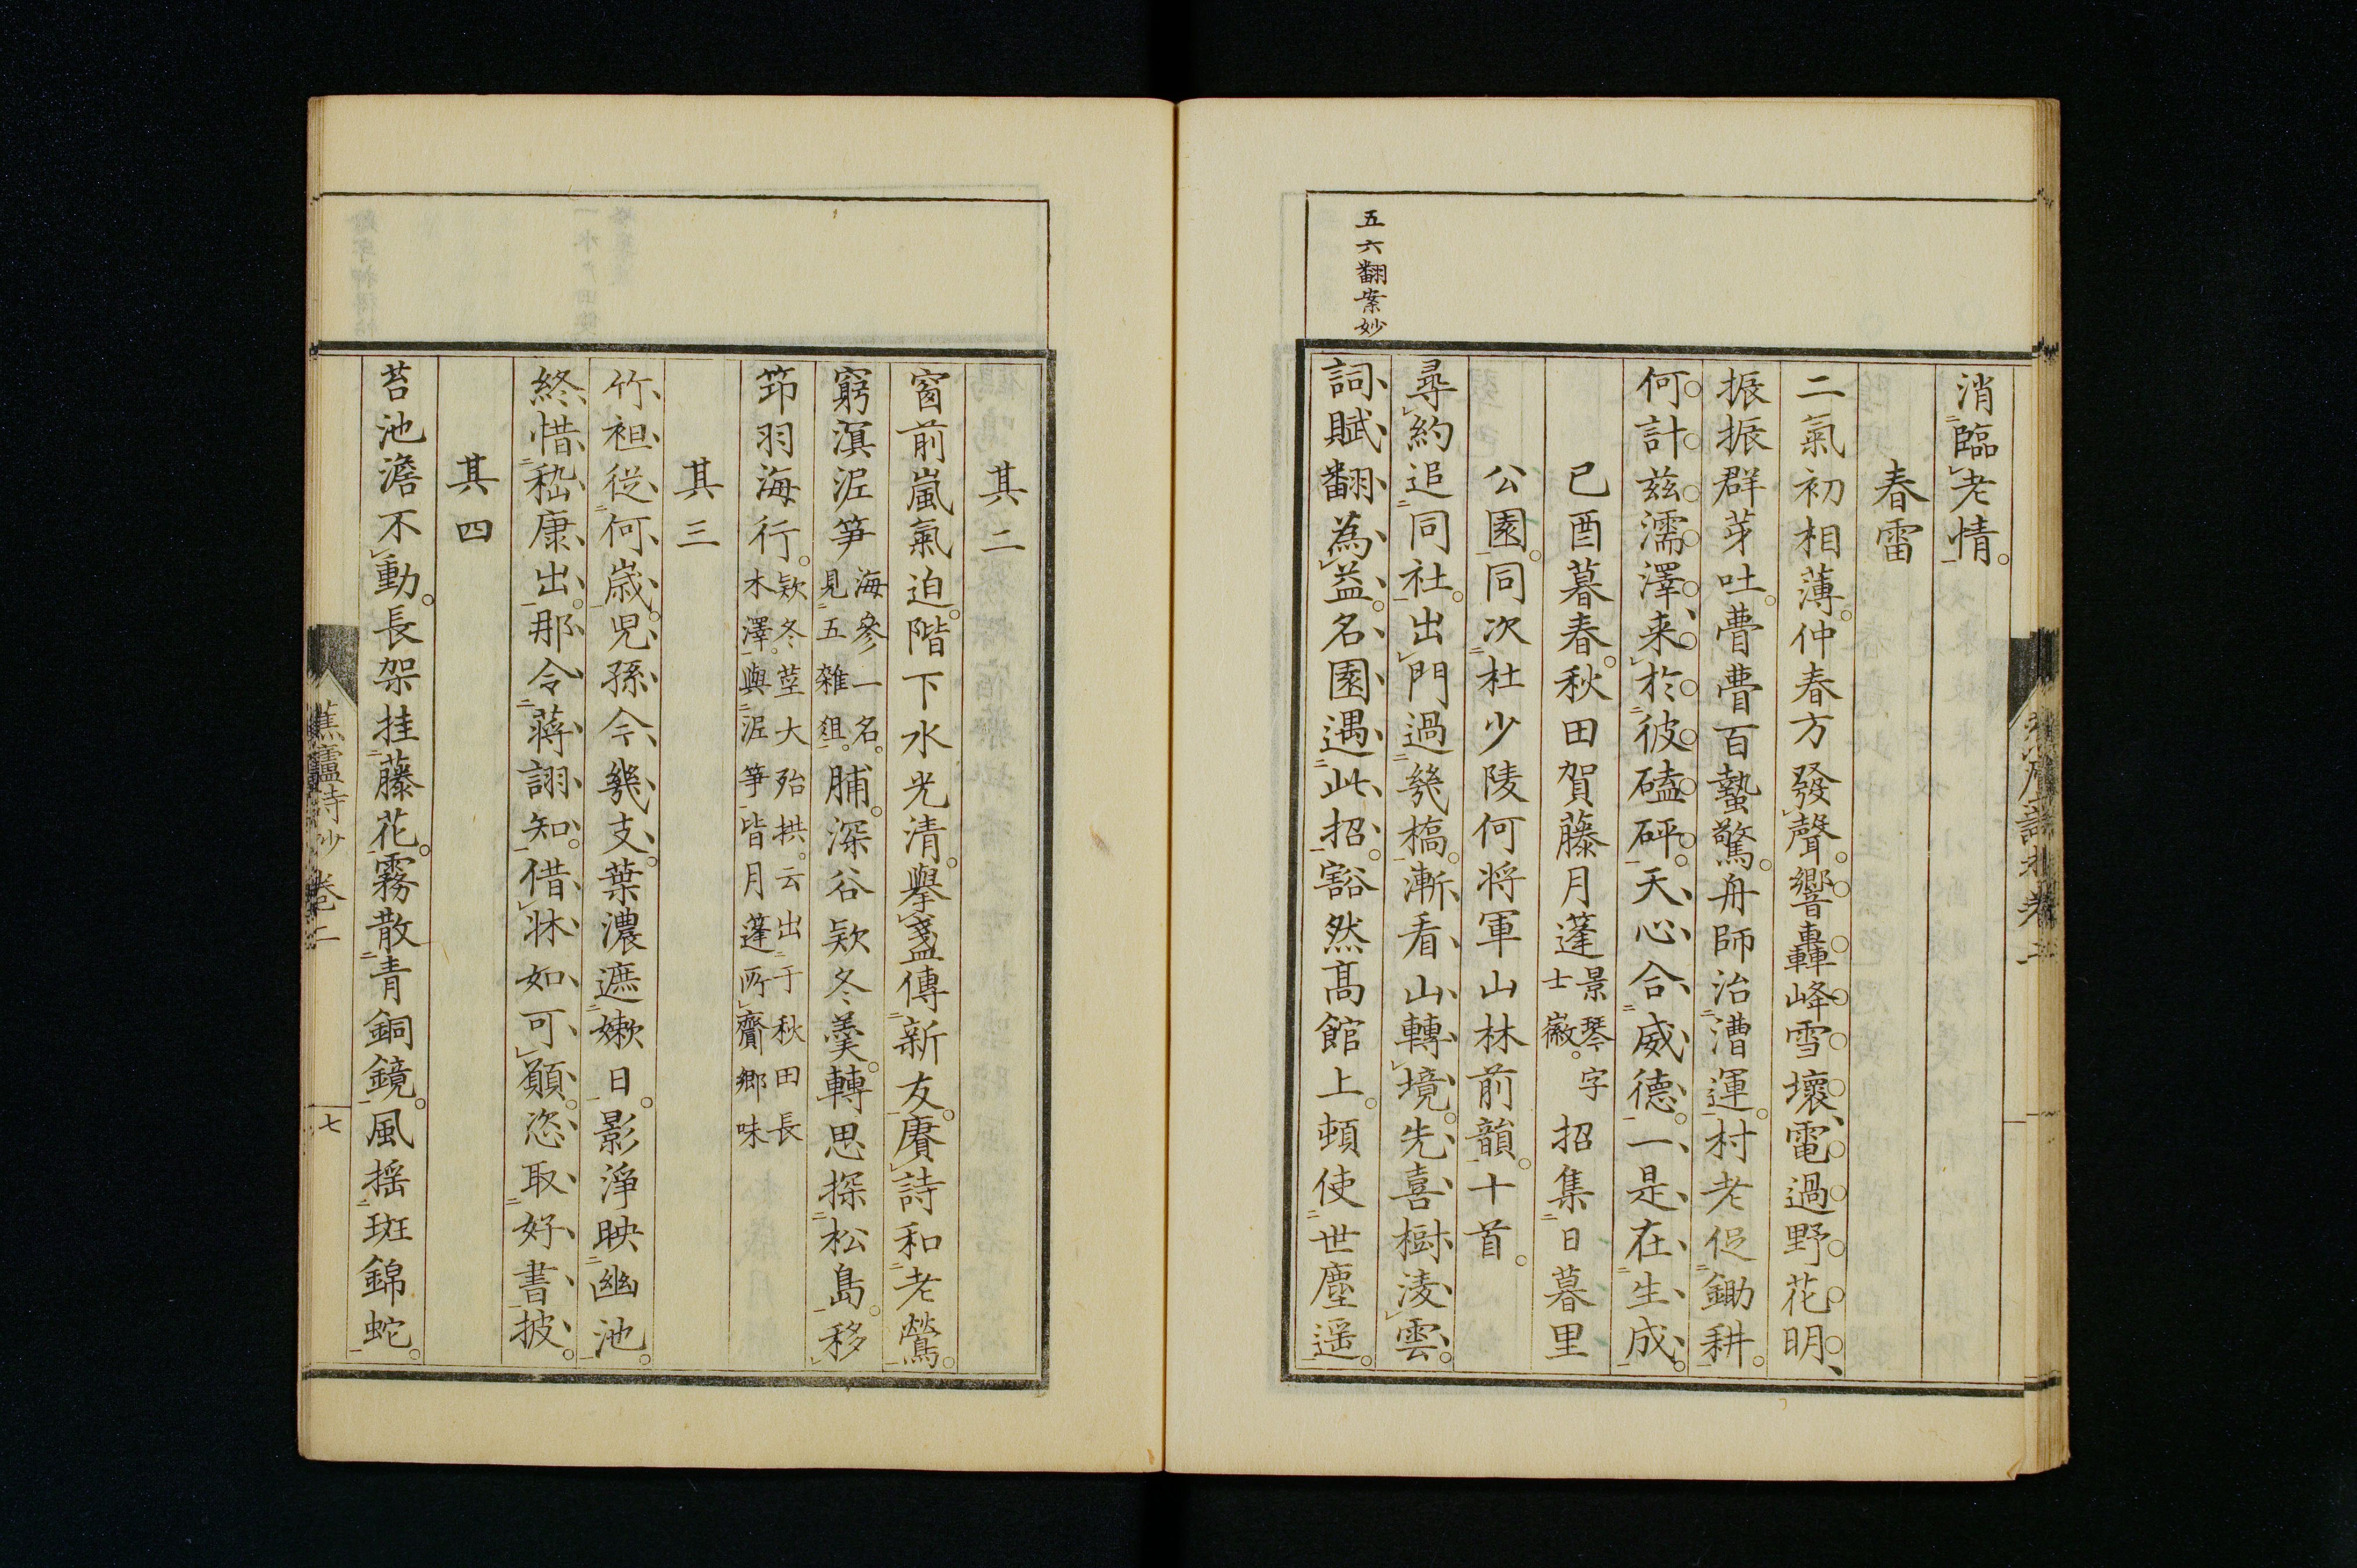 五六翻案妙
消臨老情。
春雷
二氣初相薄。仲春方發聲。響轟峰雪壞、電過野花明、
振振群芽吐。曹曹百蟄驚。舟師治漕運。村老促鋤耕。
何計茲濡澤、来於彼磕砰。天心合威德。一是在生成。
己酉暮春。秋田賀藤月蓬景琴字士徽。招集日暮里
公園。同次杜少陵何将軍山林前韻。十首。
尋約追同社。出門過幾槁。漸看山轉境。先喜樹淩雲。
詞賦翻為益。名園遇此招。豁然髙館上。頓使世塵遥。
其二
窗前嵐氣迫。階下水光清。擧盞傳新友。賡詩和老鶯。
窮溟泥笋海參一名。見五雜俎。脯。深谷欵冬羹。轉思探松島。移
笻羽海行。欵冬莖大殆拱。云出于秋田長木澤。與泥笋皆月蓬所齎鄉味
其三
竹袒從何歳。児孫今幾支。葉濃遮嫩日。影淨映幽池。
終惜嵇康出。那令蒋詡知。借牀如可願。恣取好書披。
其四
苔池澹不動。長架挂藤花。霧散青銅鏡。風揺斑錦蛇。
蕉廬詩鈔 卷二
七